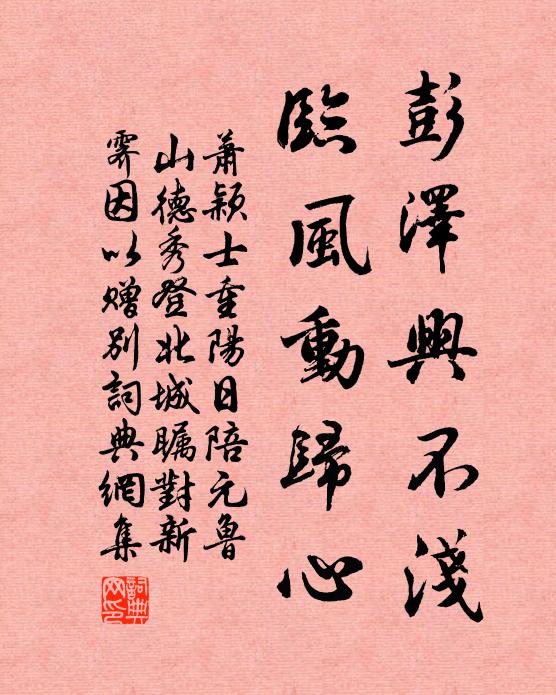 彭澤興不淺
臨風動歸心
蕭穎士重陽日陪元魯
山德秀登北城矚對新
霽因以贈別詞典網集
詞典網印